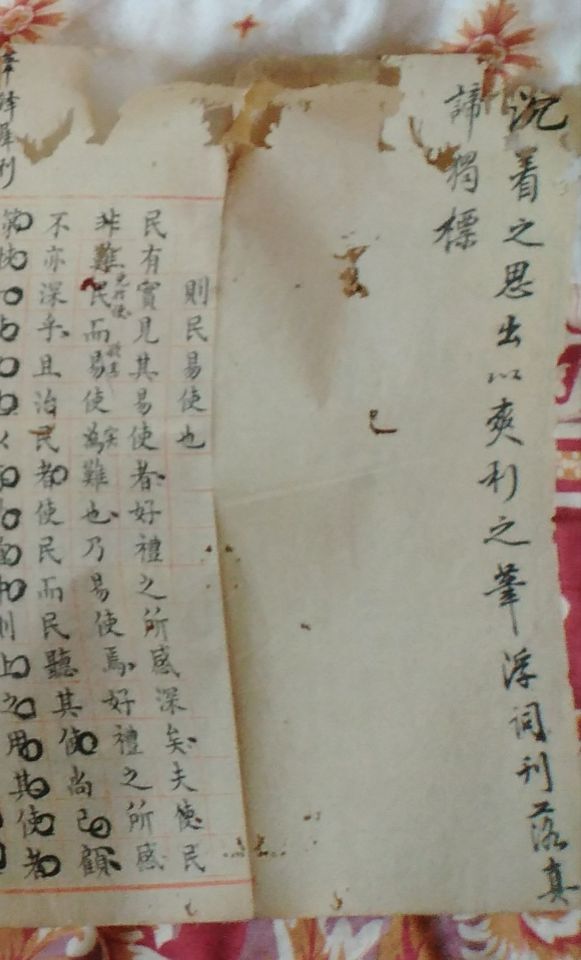 沉着之思出以爽利之筆浮詞刊落真
諦獨標
則民易使也
民有實見其易使者好禮之所感深矣夫使民
非難民而易使為難也乃易使焉好禮之所感
不亦深乎且治民者使民而民聽其使尚已顧
上之用其使者